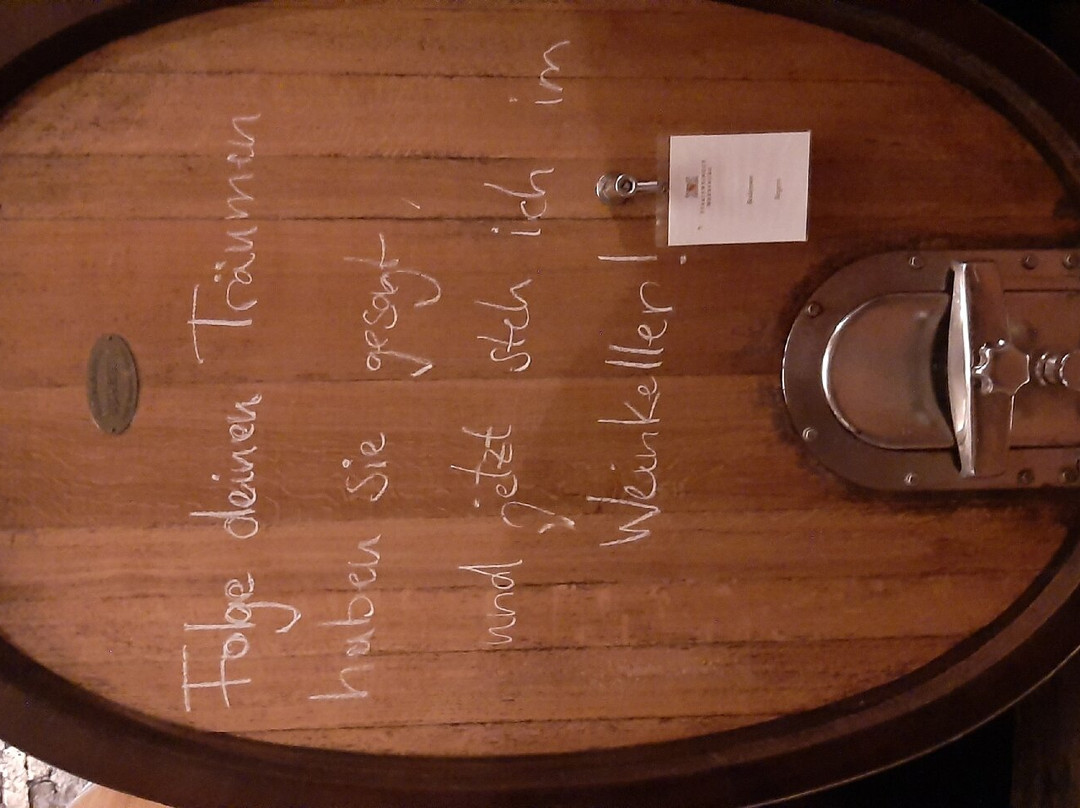 Folge deinen Träumen
haben sie gesagt,
und jetzt steh ich im
Weinkeller!